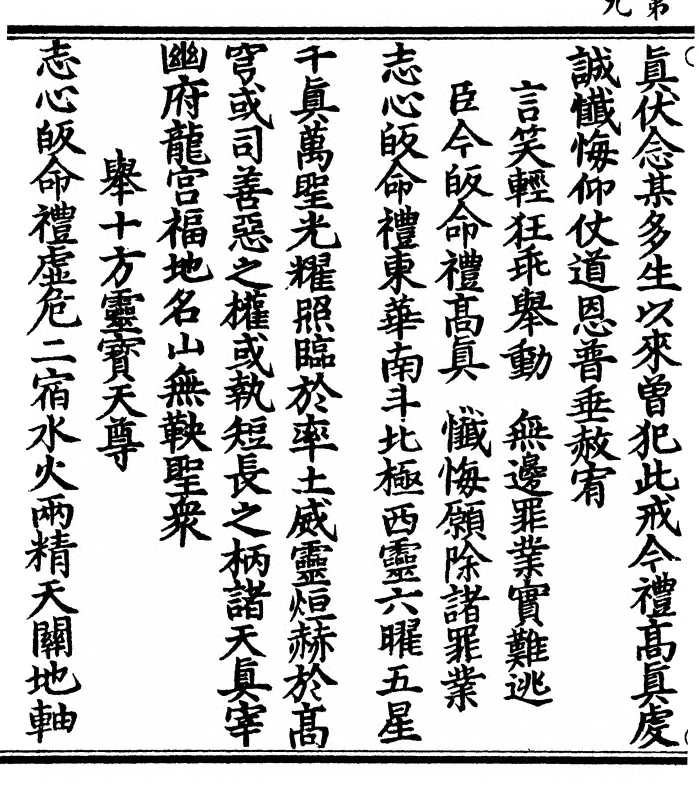 第九
眞伏念某多生以來曾犯此戒今禮髙眞虔
誠懺悔仰仗道恩普垂赦宥
言笑輕狂乖舉動　無邊罪業實難逃
臣今皈命禮髙眞　懺悔願除諸罪業
志心皈命禮東華南斗北極西靈六曜五星
千眞萬聖光耀照臨於率土威靈烜赫於髙
穹或司善惡之權或執短長之柄諸天眞宰
幽府龍宮福地名山無鞅聖衆
舉十方靈寶天尊
志心皈命禮虛危二宿水火兩精天關地軸